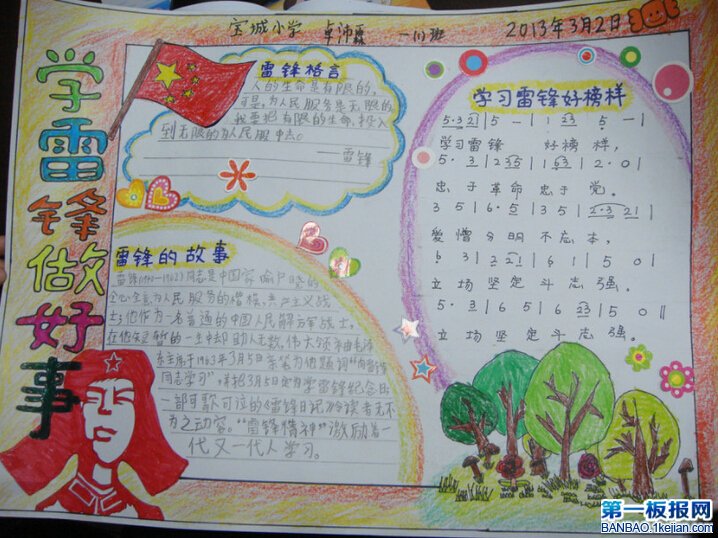 宝城小学 卓沛霖 一(1)班 2013年3月2日
学雷锋做好事
雷锋格言
人的生命是有限的,
可是,为人民服务是无限的,
我要把有限的生命,投入
到无限的为人民服中去。
——雷锋
雷锋的故事
雷锋(1940-1962)同志是中国家喻户晓的
全心全意为人民服务的楷模,共产主义战
士;他作为一名普通的中国人民解放军战士,
在他短暂的一生中却助人无数。伟大领袖毛泽
东主席于1963年3月5日亲笔为他题词“向雷锋
同志学习”,并把3月5日定为学雷锋纪念日
一部可歌可泣的《雷锋日记》令读者无不
为之动容。“雷锋精神”激励着一
代又一代人学习。
学习雷锋好榜样
5·3 2 1 | 5 — | 1 2 3 5 — |
学习雷锋 好榜样,
5·3 | 2 3 5 | 1 6 3 | 2·0 |
忠于革命忠于党。
3 5 | 6·5 | 3 5 | 2·3 2 1 |
爱憎分明不忘本,
6 3 | 2 2 1 | 6 1 5 | 1·0 |
立场坚定斗志强。
5·3 | 6 5 | 6 2 3 | 5·0 |
立场坚定斗志强。
第一板报网
BANBAO.1kejian.com